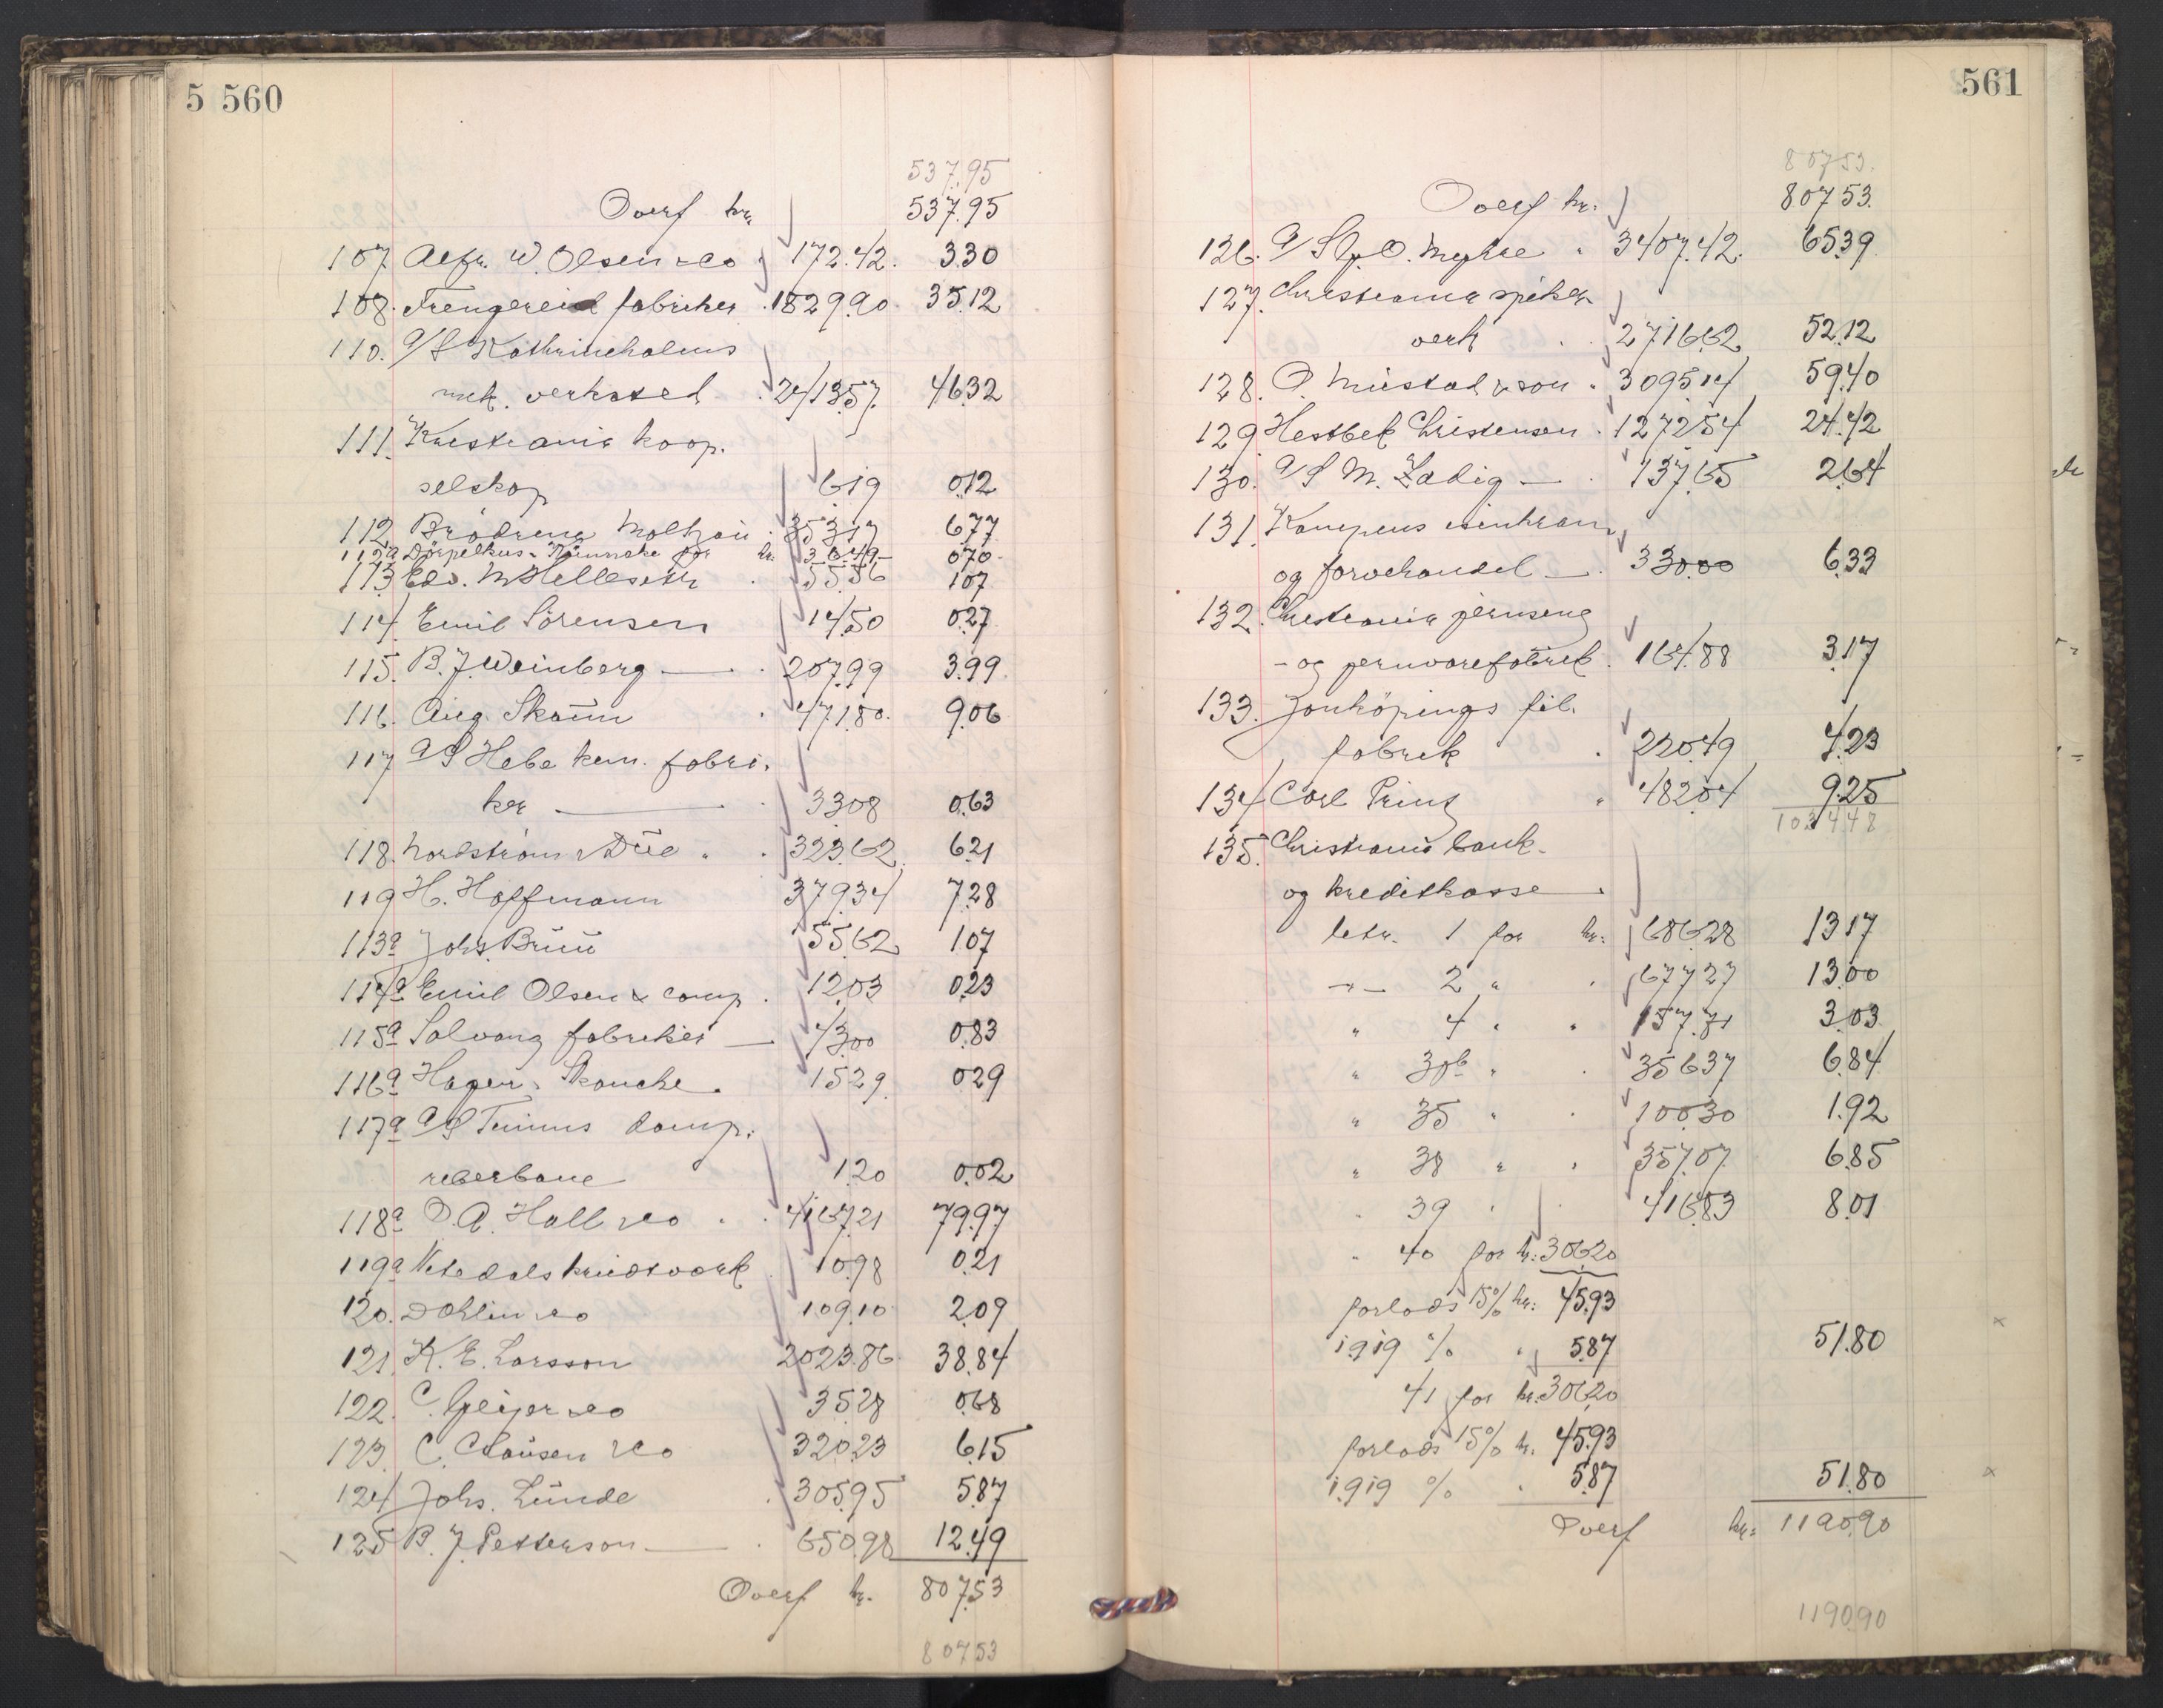 5 560
537.95
Overf kr. 537.95
107. Alfr. W. Olsen & Co 172.42. 3.30
108. Trengereid fabriker 1829.90. 35.12
110. A/S Kathrineholms
mek. verksted 2413.57 46.32
111. Kristiania koop.
selskap 6.19 0.12
112 Brödrene Moltzau 353.17 6.77
112a Dörpelkus & Künneke for kr. 36.49 0.70
113 Edv. M Hellesetr 55.56 1.07
114. Emil Sörensen 14.50 0.27
115. B. J. Weinberg — 207.99 3.99
116. Aug. Skaun 471.80. 9.06
117 A/S Hebe kem. fabri-
ker — 33.08 0.63
118. Nordström & Due 323.62 6.21
119 H. Hoffmann 379.34 7.28
113a Johs. Bruu 55.62 1.07
114a Emil Olsen & comp. 12.03 0.23
115a Solvang fabriker — 43.00 0.83
116a Hagen & Skanche 15.29 0.29
117a A/S Tenius damp.
reberbane 1.20 0.02
118a D. A. Hall & Co 4167.21 79.97
119a Nitedals krudtværk 10.98 0.21
120. Dahlin & Co 109.10 2.09
121. K. E. Larsson 2023.86 38.84
122. C. Geijer & Co 35.28 0.68
123. C. Clausen & Co 320.23 6.15
124 Johs. Lunde 305.95 5.87
125 B. J. Petterson — 650.98 12.49
Overf kr. 807.53
807.53
561
807.53.
Overf kr. 807.53.
126. A/S O. Myhre 3407.42. 65.39
127. Christiania spiker-
verk 2716.62 52.12
128. O. Mustad & søn 3095.14 59.40
129 Hestbek Christensen 1272.54 24.42
130. A/S M. Zadig — 137.65 2.64
131. Kampens isenkram
og farvehandel — 330.00 6.33
132. Christiania jernseng
- og jernvarefabrik 164.88 3.17
133. Jonköpings fil.
fabrik 220.49 4.23
134 Carl Prinz 482.04 9.25
1034.48
135. Christiania bank-
og kreditkasse
letr. 1 for kr: 686.28 13.17
-"- 2 " 677.27 13.00
" 4 " " 157.71 3.03
" 30b " 356.37 6.84
" 35 " 100.30 1.92
" 38 " " 357.07 6.85
" 39 " 416.83 8.01
" 40 for kr: 306.20
forlods 15% kr: 45.93
1.919 % " 5.87 51.80
41 for kr. 306.20
forlods 15% kr. 45.93
1.919 % " 5.87 51.80
Overf kr: 1190.90
1190.90